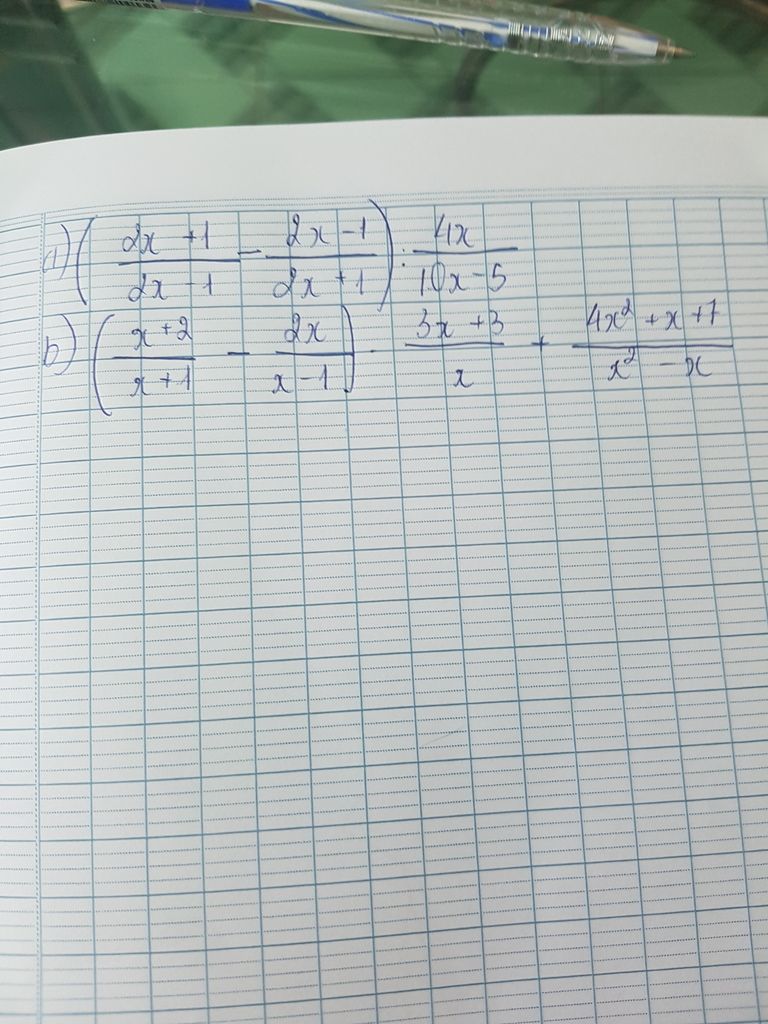 a) ( (2x + 1)/(2x - 1) - (2x - 1)/(2x + 1) ) : 4x/(10x - 5)
b) ( (x + 2)/(x + 1) - 2x/(x - 1) ) · (3x + 3)/x + (4x² + x + 7)/(x² - x)